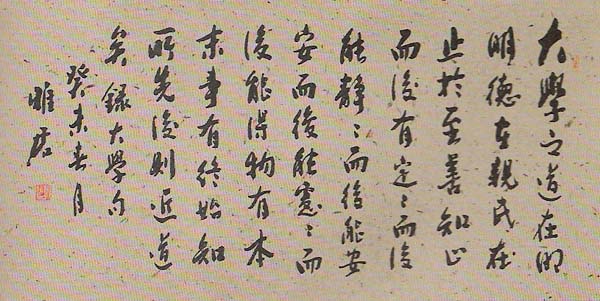 大學之道在明
明德在親民在
止於至善知止
而後有定〻而後
能靜〻而後能安
安而後能慮〻而
後能得物有本
末事有終始知
所先後則近道
矣錄大學句
癸未春月